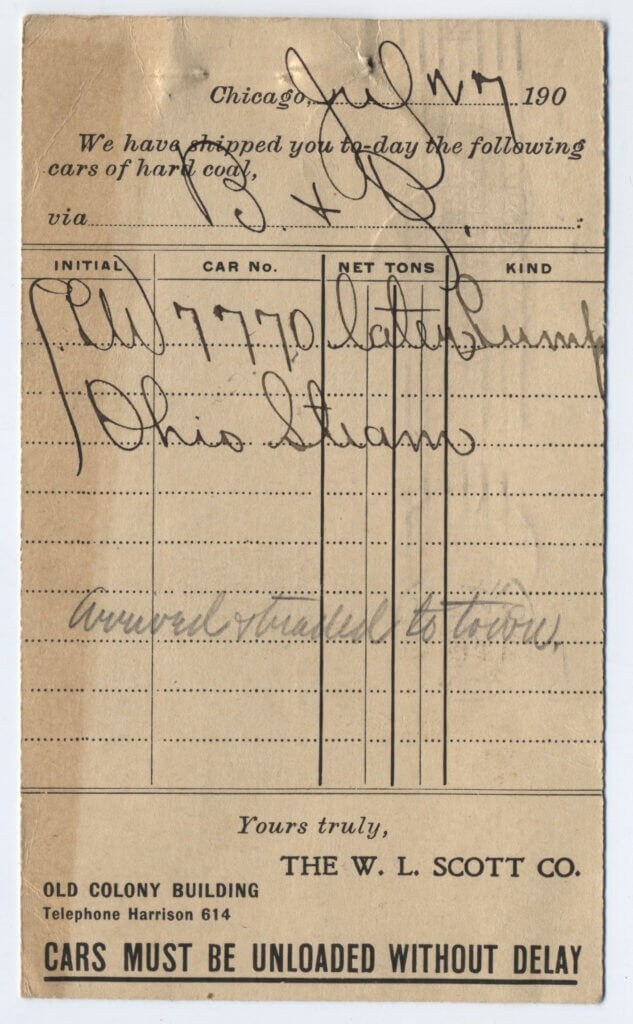 Chicago, 190
We have shipped you to-day the following
cars of hard coal,
via B. &
INITIAL CAR No. NET TONS KIND
7770 later Lump
Ohio Steam
arrived & traded to town.
Yours truly,
THE W. L. SCOTT CO.
OLD COLONY BUILDING
Telephone Harrison 614
CARS MUST BE UNLOADED WITHOUT DELAY